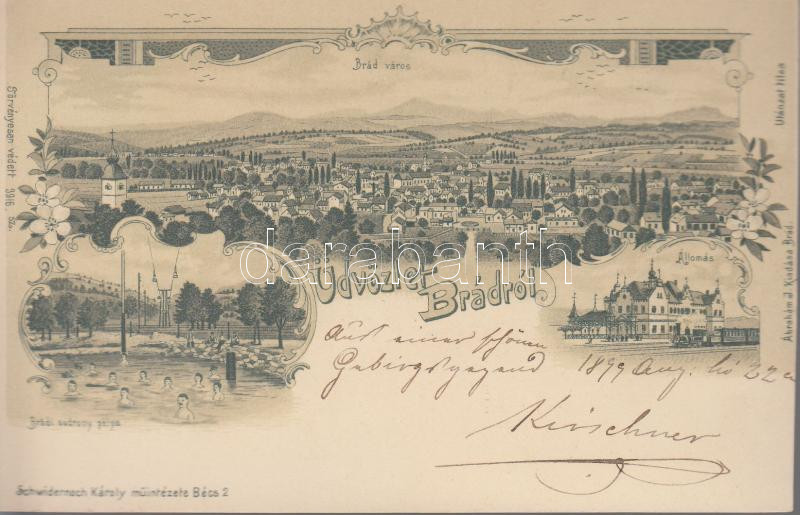 Brád város
Törvényesen védett 3916 sz.
Utánzat tilos
Ábrahám J. Kiadása Brád.
darabanth
Üdvözlet
Brádról
Állomás
Aus einer schönen
Gebirgsgegend 1899 Aug. hó 22
Kirschner
Brádi sodrony pálya
Schwidernoch Károly müintézete Bécs 2